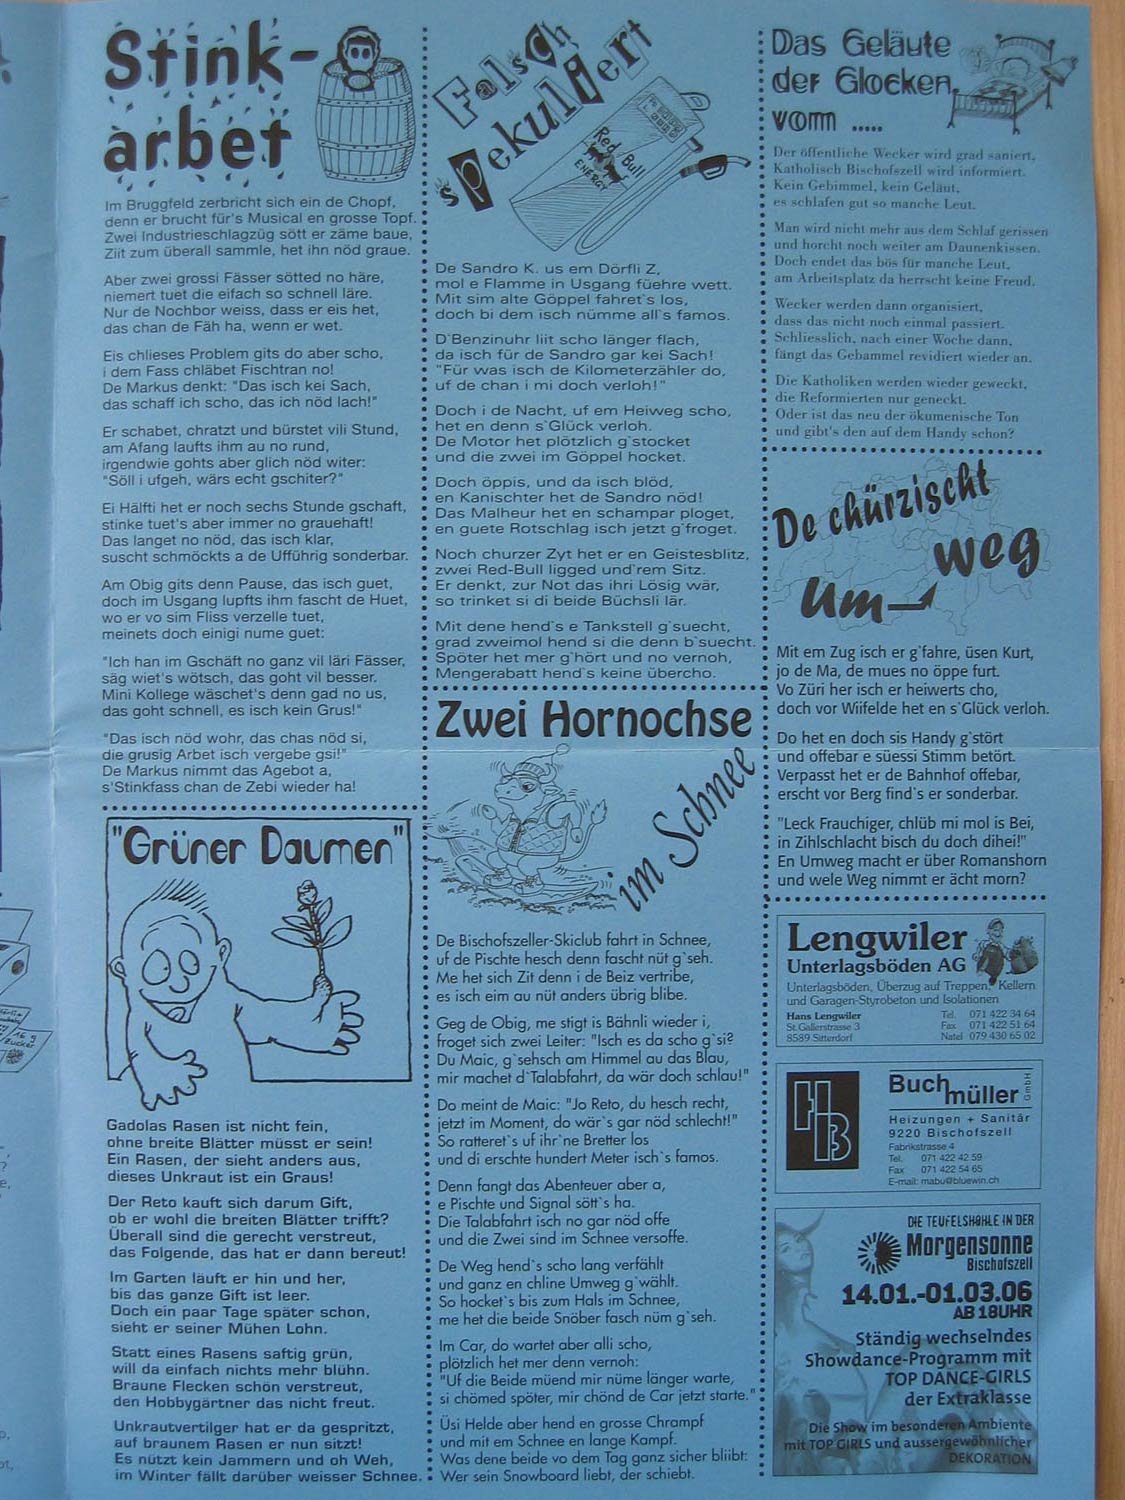 Stink-
arbet
Im Bruggfeld zerbricht sich ein de Chopf,
denn er brucht für's Musical en grosse Topf.
Zwei Industrieschlagzüg sött er zäme baue,
Ziit zum überall sammle, het ihn nöd graue.
Aber zwei grossi Fässer sötted no häre,
niemert tuet die eifach so schnell läre.
Nur de Nochbor weiss, dass er eis het,
das chan de Fäh ha, wenn er wet.
Eis chlieses Problem gits do aber scho,
i dem Fass chläbet Fischtran no!
De Markus denkt: "Das isch kei Sach,
das schaff ich scho, das ich nöd lach!"
Er schabet, chratzt und bürstet vili Stund,
am Afang laufts ihm au no rund,
irgendwie gohts aber glich nöd witer:
"Söll i ufgeh, wärs echt gschiter?"
Ei Hälfti het er noch sechs Stunde gschaft,
stinke tuet's aber immer no grauehaft!
Das langet no nöd, das isch klar,
suscht schmöckts a de Ufführig sonderbar.
Am Obig gits denn Pause, das isch guet,
doch im Usgang lupfts ihm fascht de Huet,
wo er vo sim Fliss verzelle tuet,
meinets doch einigi nume guet:
"Ich han im Gschäft no ganz vil läri Fässer,
säg wiet's wötsch, das goht vil besser.
Mini Kollege wäschet's denn gad no us,
das goht schnell, es isch kein Grus!"
"Das isch nöd wohr, das chas nöd si,
die grusig Arbet isch vergebe gsi!"
De Markus nimmt das Agebot a,
s'Stinkfass chan de Zebi wieder ha!
"Grüner Daumen"
Gadolas Rasen ist nicht fein,
ohne breite Blätter müsst er sein!
Ein Rasen, der sieht anders aus,
dieses Unkraut ist ein Graus!
Der Reto kauft sich darum Gift,
ob er wohl die breiten Blätter trifft?
Überall sind die gerecht verstreut,
das Folgende, das hat er dann bereut!
Im Garten läuft er hin und her,
bis das ganze Gift ist leer.
Doch ein paar Tage später schon,
sieht er seiner Mühen Lohn.
Statt eines Rasens saftig grün,
will da einfach nichts mehr blühn.
Braune Flecken schön verstreut,
den Hobbygärtner das nicht freut.
Unkrautvertilger hat er da gespritzt,
auf braunem Rasen er nun sitzt!
Es nützt kein Jammern und oh Weh,
im Winter fällt darüber weisser Schnee.
Falsch
spekuliert
Red Bull
ENERGY
De Sandro K. us em Dörfli Z,
mol e Flamme in Usgang füehre wett.
Mit sim alte Göppel fahret`s los,
doch bi dem isch nümme all`s famos.
D`Benzinuhr liit scho länger flach,
da isch für de Sandro gar kei Sach!
"Für was isch de Kilometerzähler do,
uf de chan i mi doch verloh!"
Doch i de Nacht, uf em Heiweg scho,
het en denn s`Glück verloh.
De Motor het plötzlich g`stocket
und die zwei im Göppel hocket.
Doch öppis, und da isch blöd,
en Kanischter het de Sandro nöd!
Das Malheur het en schampar ploget,
en guete Rotschlag isch jetzt g`froget.
Noch churzer Zyt het er en Geistesblitz,
zwei Red-Bull ligged und`rem Sitz.
Er denkt, zur Not das ihri Lösig wär,
so trinket si di beide Büchsli lär.
Mit dene hend`s e Tankstell g`suecht,
grad zweimol hend si die denn b`suecht.
Später het mer g`hört und no vernoh,
Mengerabatt hend`s keine übercho.
Zwei Hornochse
im Schnee
De Bischofszeller-Skiclub fahrt in Schnee,
uf de Pischte hesch denn fascht nüt g`seh.
Me het sich Zit denn i de Beiz vertribe,
es isch eim au nüt anders übrig blibe.
Geg de Obig, me stigt is Bähnli wieder i,
froget sich zwei Leiter: "Isch es da scho g`si?
Du Maic, g`sehsch am Himmel au das Blau,
mir machet d`Talabfahrt, da wär doch schlau!"
Do meint de Maic: "Jo Reto, du hesch recht,
jetzt im Moment, do wär`s gar nöd schlecht!"
So ratteret`s uf ihr`ne Bretter los
und di erschte hundert Meter isch`s famos.
Denn fangt das Abenteuer aber a,
e Pischte und Signal sött`s ha.
Die Talabfahrt isch no gar nöd offe
und die Zwei sind im Schnee versoffe.
De Weg hend`s scho lang verfählt
und ganz en chline Umweg g`wählt.
So hocket`s bis zum Hals im Schnee,
me het die beide Snöber fasch nüm g`seh.
Im Car, do wartet aber alli scho,
plötzlich het mer denn vernoh:
"Uf die Beide müend mir nüme länger warte,
si chömed später, mir chönd de Car jetzt starte."
Üsi Helde aber hend en grosse Chrampf
und mit em Schnee en lange Kampf.
Was dene beide vo dem Tag ganz sicher bliibt:
Wer sein Snowboard liebt, der schiebt.
Das Geläute
der Glocken
vom .....
Der öffentliche Wecker wird grad saniert,
Katholisch Bischofszell wird informiert.
Kein Gebimmel, kein Geläut,
es schlafen gut so manche Leut.
Man wird nicht mehr aus dem Schlaf gerissen
und horcht noch weiter am Daunenkissen.
Doch endet das bös für manche Leut,
am Arbeitsplatz da herrscht keine Freud.
Wecker werden dann organisiert,
dass das nicht noch einmal passiert.
Schliesslich, nach einer Woche dann,
fängt das Gebammel revidiert wieder an.
Die Katholiken werden wieder geweckt,
die Reformierten nur geneckt.
Oder ist das neu der ökumenische Ton
und gibt's den auf dem Handy schon?
De chürzischt
Um-weg
Mit em Zug isch er g`fahre, üsen Kurt,
jo de Ma, de mues no öppe furt.
Vo Züri her isch er heiwerts cho,
doch vor Wiifelde het en s`Glück verloh.
Do het en doch sis Handy g`stört
und offebar e süessi Stimm betört.
Verpasst het er de Bahnhof offebar,
erscht vor Berg find's er sonderbar.
"Leck Frauchiger, chlüb mi mol is Bei,
in Zihlschlacht bisch du doch dihei!"
En Umweg macht er über Romanshorn
und wele Weg nimmt er ächt morn?
Lengwiler
Unterlagsböden AG
Unterlagsböden, Überzug auf Treppen, Kellern
und Garagen-Styrobeton und Isolationen
Hans Lengwiler
St.Gallerstrasse 3
8589 Sitterdorf
Tel. 071 422 34 64
Fax 071 422 51 64
Natel 079 430 65 02
HB
Buchmüller GmbH
Heizungen + Sanitär
9220 Bischofszell
Fabrikstrasse 4
Tel. 071 422 42 59
Fax 071 422 54 65
E-mail: mabu@bluewin.ch
DIE TEUFELSHÖHLE IN DER
Morgensonne
Bischofszell
14.01.-01.03.06
AB 18UHR
Ständig wechselndes
Showdance-Programm mit
TOP DANCE-GIRLS
der Extraklasse
Die Show im besonderen Ambiente
mit TOP GIRLS und aussergewöhnlicher
DEKORATION